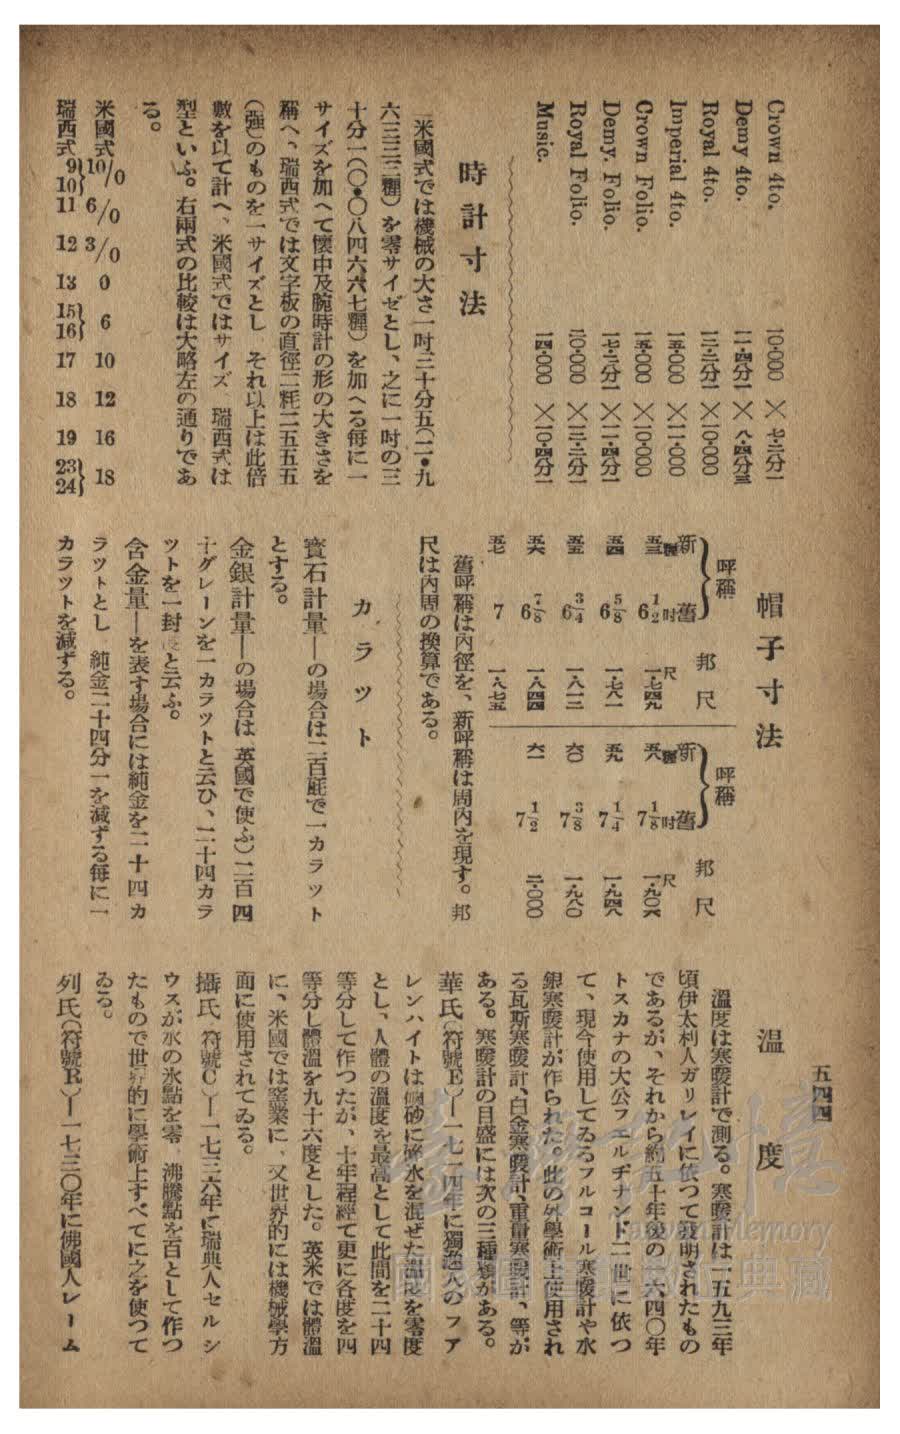 五四四
Crown 4to. 一〇・〇〇〇 × 七・二分一
Demy 4to. 一一・四分一 × 八・四分三
Royal 4to. 一二・二分一 × 一〇・〇〇〇
Imperial 4to. 一五・〇〇〇 × 一一・〇〇〇
Crown Folio. 一五・〇〇〇 × 一〇・〇〇〇
Demy. Folio. 一七・二分一 × 一一・四分一
Royal Folio. 二〇・〇〇〇 × 一二・二分一
Music. 一四・〇〇〇 × 一〇・四分一
時計寸法
米國式では機械の大さ一吋三十分五(二・九
六三三三糎)を零サイゼとし、之に一吋の三
十分一(〇・〇八四六六七糎)を加へる每に一
サイズを加へて懷中及腕時計の形の大きさを
稱へ、瑞西式では文字板の直徑二粍二五五五
(强)のものを一サイズとし それ以上は此倍
數を以て計へ、米國式ではサイズ 瑞西式は
型といふ。右兩式の比較は大略左の通りであ
る。
米國式 10/0 6/0 3/0 0 6 10 12 16 18
瑞西式 9 10} 11 12 13 15 16} 17 18 19 23 24}
帽子寸法
呼稱 邦尺 呼稱 邦尺
新 舊吋 尺 新 舊吋 尺
五三 6 1/2 一・七四九 五八 7 1/8 一・九〇六
五四 6 5/8 一・七八一 五九 7 1/4 一・九四八
五五 6 3/4 一・八一二 六〇 7 3/8 一・九八〇
五六 6 7/8 一・八四四 六一 7 1/2 二・〇〇〇
五七 7 一・八七五
舊呼稱は內徑を、新呼稱は周內を現す。邦
尺は內周の換算である。
カラット
寶石計量―の場合は二百瓱で一カラット
とする。
金銀計量―の場合は 英國で使ふ)二百四
十グレーンを一カラットと云ひ、二十四カラ
ットを一封度と云ふ。
含金量―を表す場合には純金を二十四カ
ラットとし 純金二十四分一を減ずる每に一
カラットを減ずる。
溫度
溫度は寒暖計で測る。寒暖計は一五九三年
頃伊太利人ガリレイに依つて發明されたもの
であるが、それから約五十年後の一六四〇年
トスカナの大公フエルヂナンド二世に依つ
て、現今使用してゐるアルコール寒暖計や水
銀寒暖計が作られた。此の外學術上使用され
る瓦斯寒暖計、白金寒暖計、重量寒暖計、等が
ある。寒暖計の目盛には次の三種類がある。
華氏(符號F)―一七一四年に獨逸人のファ
レンハイトは硇砂に碎氷を混ぜた溫度を零度
とし、人體の溫度を最高として此間を二十四
等分して作つたが、十年程經て更に各度を四
等分し體溫を九十六度とした。英米では體溫
に、米國では窰業に、又世界的には機械學方
面に使用されてゐる。
攝氏 符號C)―一七三六年に瑞典人セルシ
ウスが水の氷點を零 沸騰點を百として作つ
たもので世界的に學術上すべてに之を使つて
ゐる。
列氏(符號R)―一七三〇年に佛國人レーム
臺灣記憶
Taiwan Memory
國家圖書館館典藏